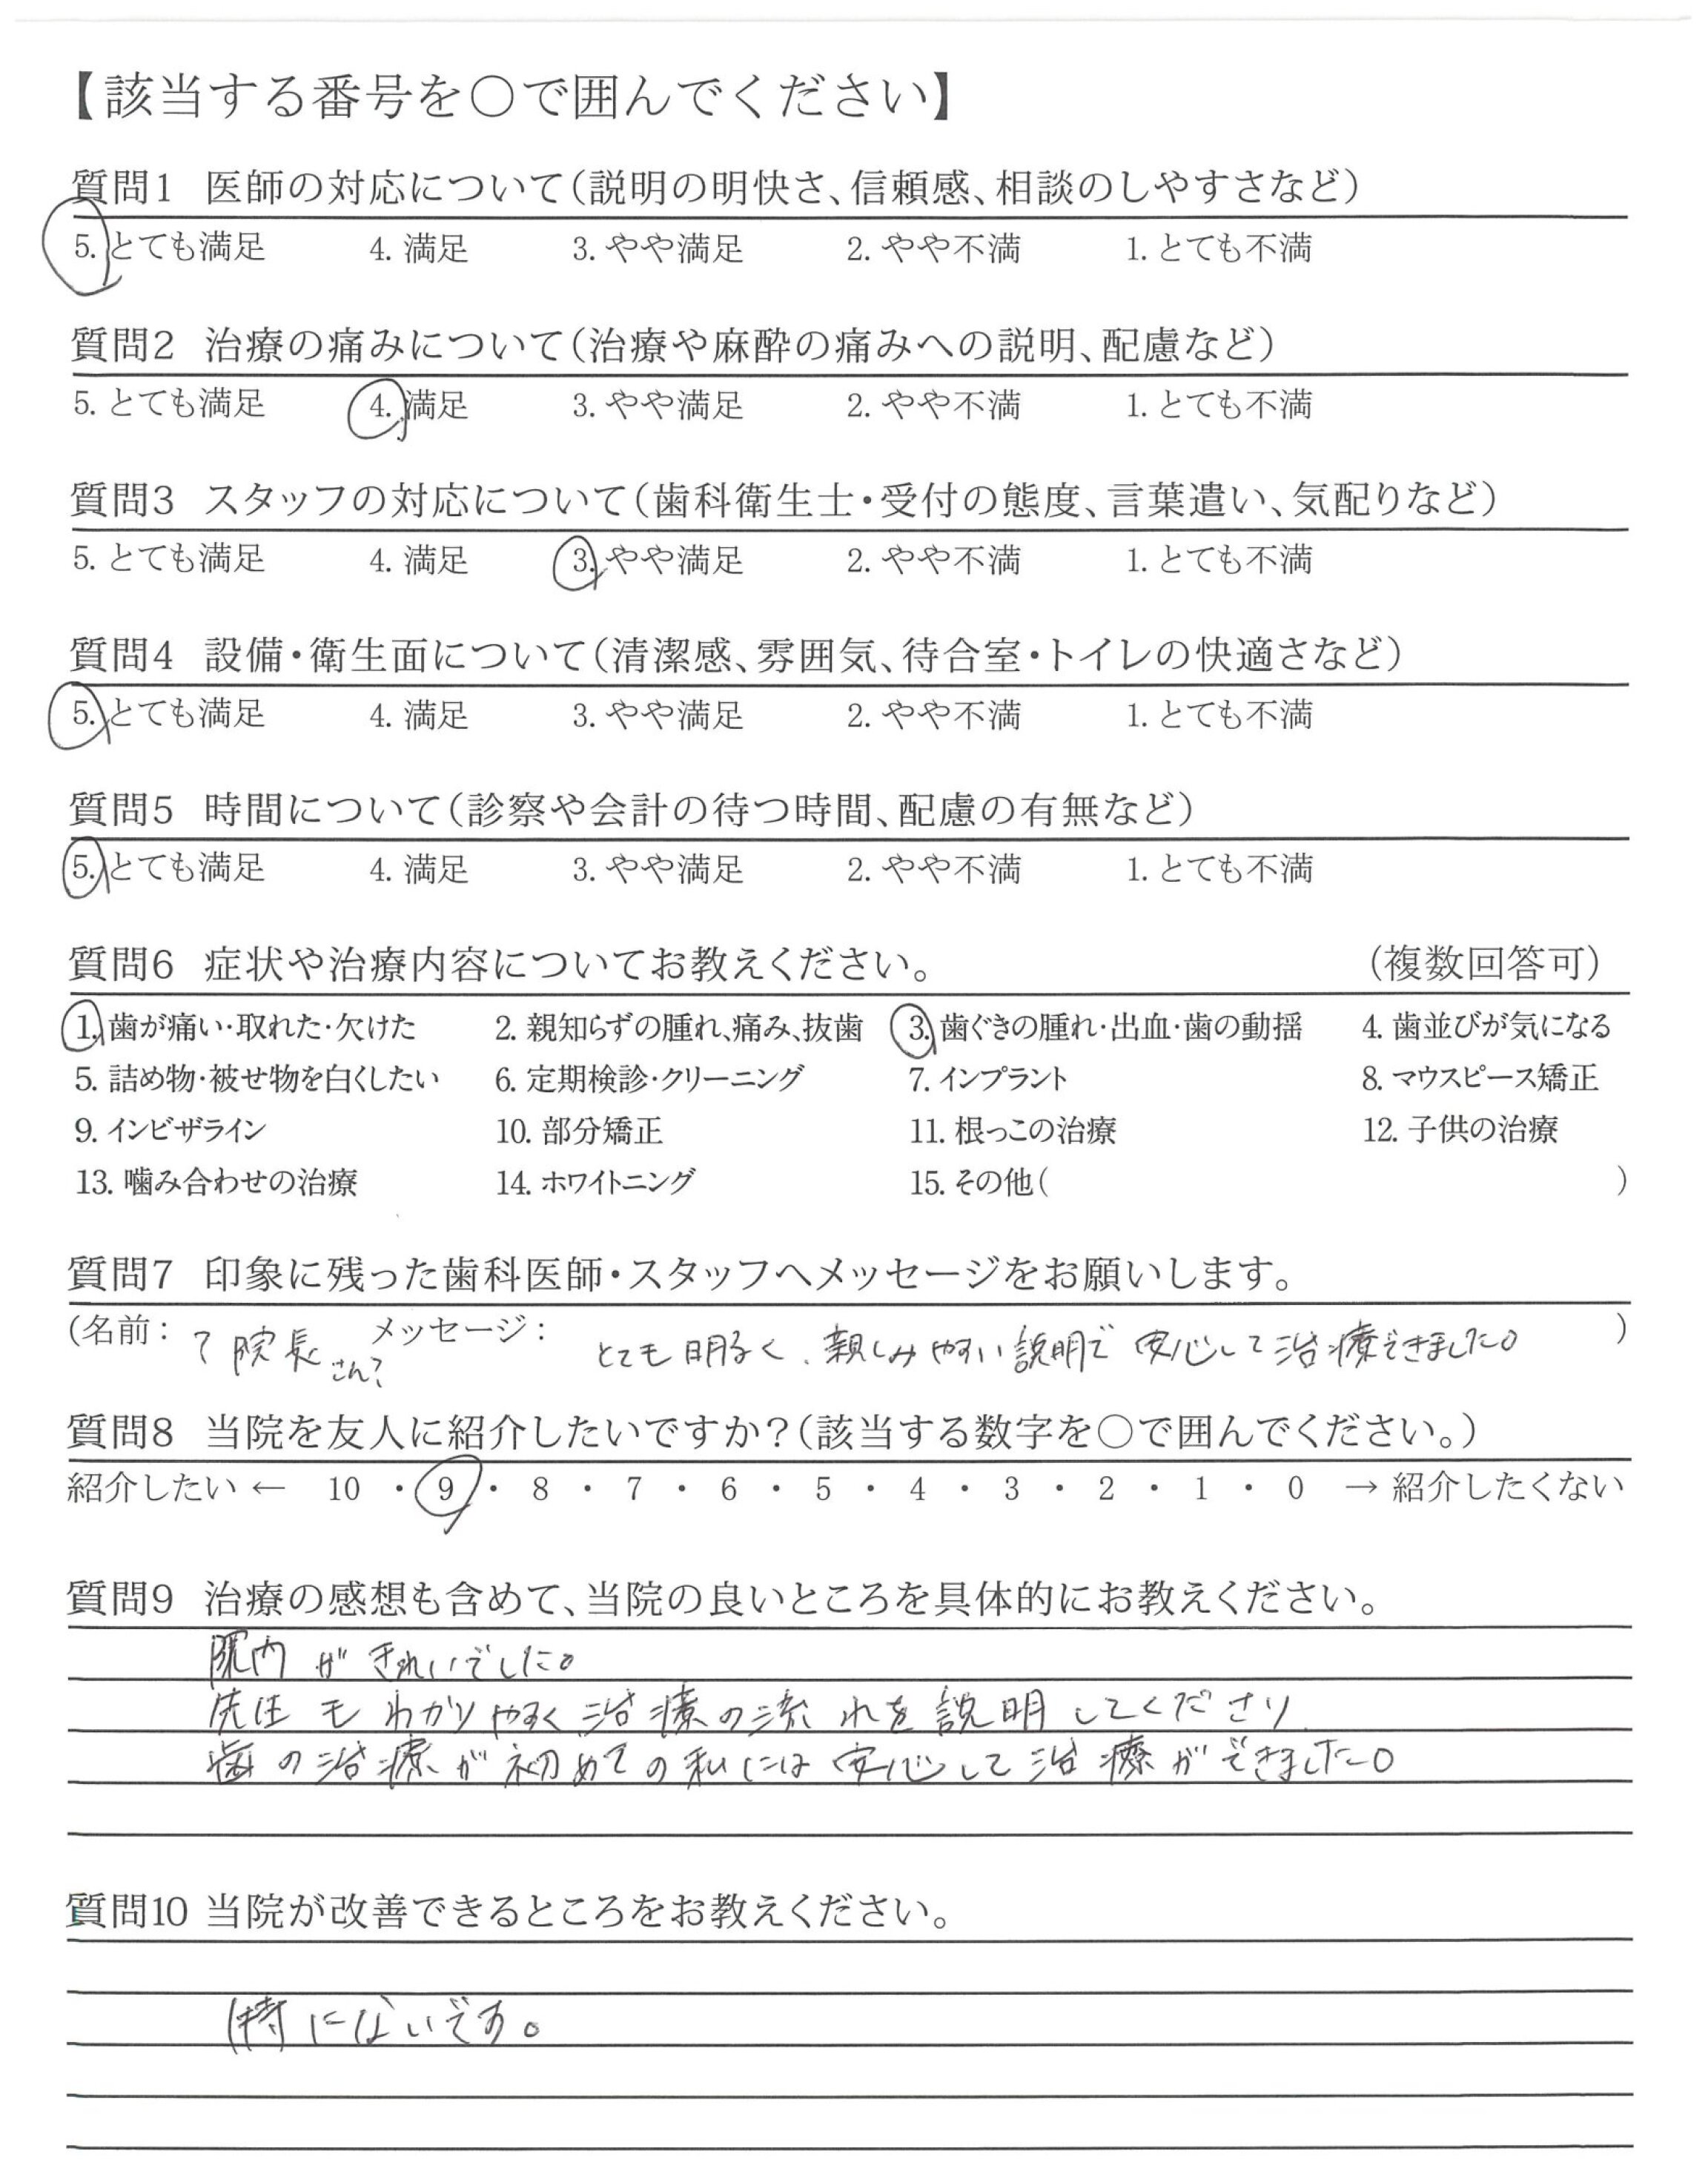 【該当する番号を○で囲んでください】
質問1 医師の対応について(説明の明快さ、信頼感、相談のしやすさなど)
5. とても満足 4. 満足 3. やや満足 2. やや不満 1. とても不満
質問2 治療の痛みについて(治療や麻酔の痛みへの説明、配慮など)
5. とても満足 4. 満足 3. やや満足 2. やや不満 1. とても不満
質問3 スタッフの対応について(歯科衛生士・受付の態度、言葉遣い、気配りなど)
5. とても満足 4. 満足 3. やや満足 2. やや不満 1. とても不満
質問4 設備・衛生面について(清潔感、雰囲気、待合室・トイレの快適さなど)
5. とても満足 4. 満足 3. やや満足 2. やや不満 1. とても不満
質問5 時間について(診察や会計の待つ時間、配慮の有無など)
5. とても満足 4. 満足 3. やや満足 2. やや不満 1. とても不満
質問6 症状や治療内容についてお教えください。 (複数回答可)
1. 歯が痛い・取れた・欠けた 2. 親知らずの腫れ、痛み、抜歯 3. 歯ぐきの腫れ・出血・歯の動揺 4. 歯並びが気になる
5. 詰め物・被せ物を白くしたい 6. 定期検診・クリーニング 7. インプラント 8. マウスピース矯正
9. インビザライン 10. 部分矯正 11. 根っこの治療 12. 子供の治療
13. 噛み合わせの治療 14. ホワイトニング 15. その他( )
質問7 印象に残った歯科医師・スタッフへメッセージをお願いします。
(名前: ? 院長さん? メッセージ: とても明るく、親しみやすい説明で安心して治療できました。 )
質問8 当院を友人に紹介したいですか?(該当する数字を○で囲んでください。)
紹介したい ← 10 ・ 9 ・ 8 ・ 7 ・ 6 ・ 5 ・ 4 ・ 3 ・ 2 ・ 1 ・ 0 → 紹介したくない
質問9 治療の感想も含めて、当院の良いところを具体的にお教えください。
院内がきれいでした。
先生もわかりやすく治療の流れを説明してくださり
歯の治療が初めての私には安心して治療ができました。
質問10 当院が改善できるところをお教えください。
特にないです。